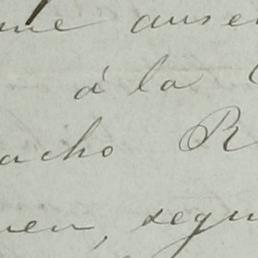 me ause
á la
acho R
en, segu